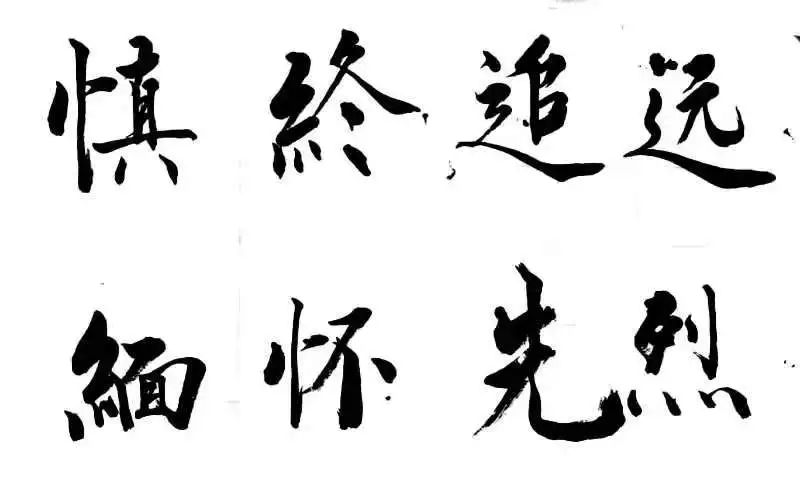 慎終追远
緬怀先烈